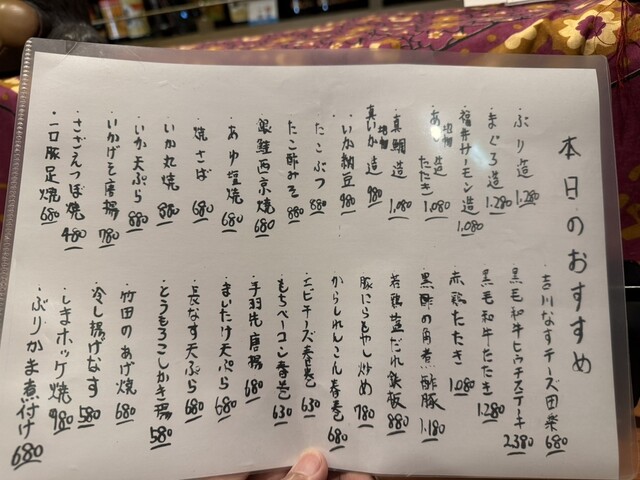 本日のおすすめ
・ぶり造 1.280
・まぐろ造 1.280
・福井サーモン造 1.080
・あじ 造 たたき 1.080
・真鯛 造 1.080
・真いか 造 980
・いか納豆 980
・たこぶつ 880
・たこ酢みそ 880
・銀鮭西京焼 680
・あゆ塩焼 680
・焼さば 680
・いか丸焼 880
・いか天ぷら 880
・いかげそ唐揚 780
・さざえつぼ焼 480
・一口豚足焼 680
・吉川なすチーズ田楽 680
・黒毛和牛ヒウチステーキ 2380
・黒毛和牛たたき 1.280
・赤鶏たたき 1.080
・黒酢の角煮酢豚 1.180
・若鶏韮だれ鉄板 880
・豚にらもやし炒め 780
・からしれんこん春巻 680
・エビチーズ春巻 630
・もちベーコン春巻 630
・手羽先唐揚 680
・まいたけ天ぷら 680
・長なす天ぷら 680
・とうもろこしかき揚 580
・竹田のあげ焼 680
・冷し揚げなす 580
・しまホッケ焼 980
・ぶりかま煮付け 680